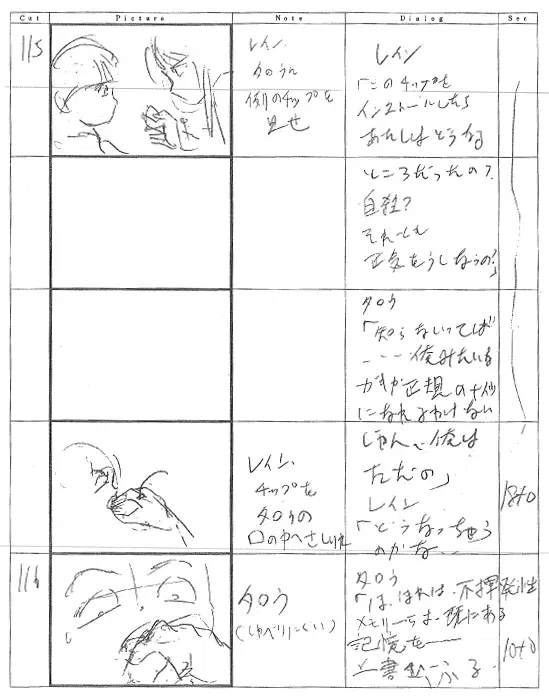 Cut Picture Note Dialog Sec
115
レイン.
タロウに
例のチップを
見せ
レイン
「このチップを
インストールしたら
あたしはどうなる
ところだったの?
自殺?
それとも
正気をうしなうの?」
タロウ
「知らないってば
----俺みたいな
ガキが正規のナイツ
になれるわけない
じゃん、俺は
ただの」
レイン.
チップを
タロウの
口の中へさし入れ
レイン
「どうなっちゃう
のかな---
18+0
116
タロウ
(しゃべりにくい)
タロウ
「は、ほれは、不揮発性
メモリーちは、既にある
記憶を――
上書き---ふる.
10+0